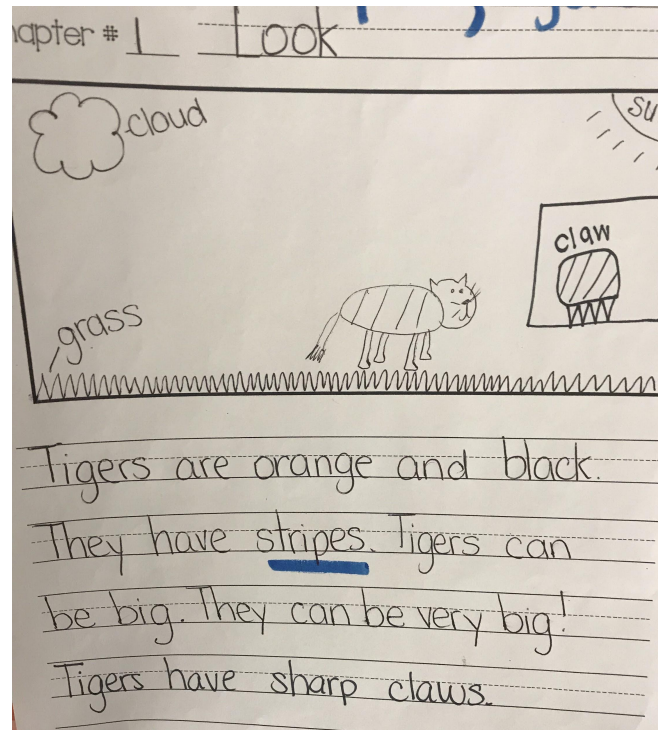 Chapter # 1 Look
cloud
claw
grass
Tigers are orange and black.
They have stripes. Tigers can
be big. They can be very big!
Tigers have sharp claws.